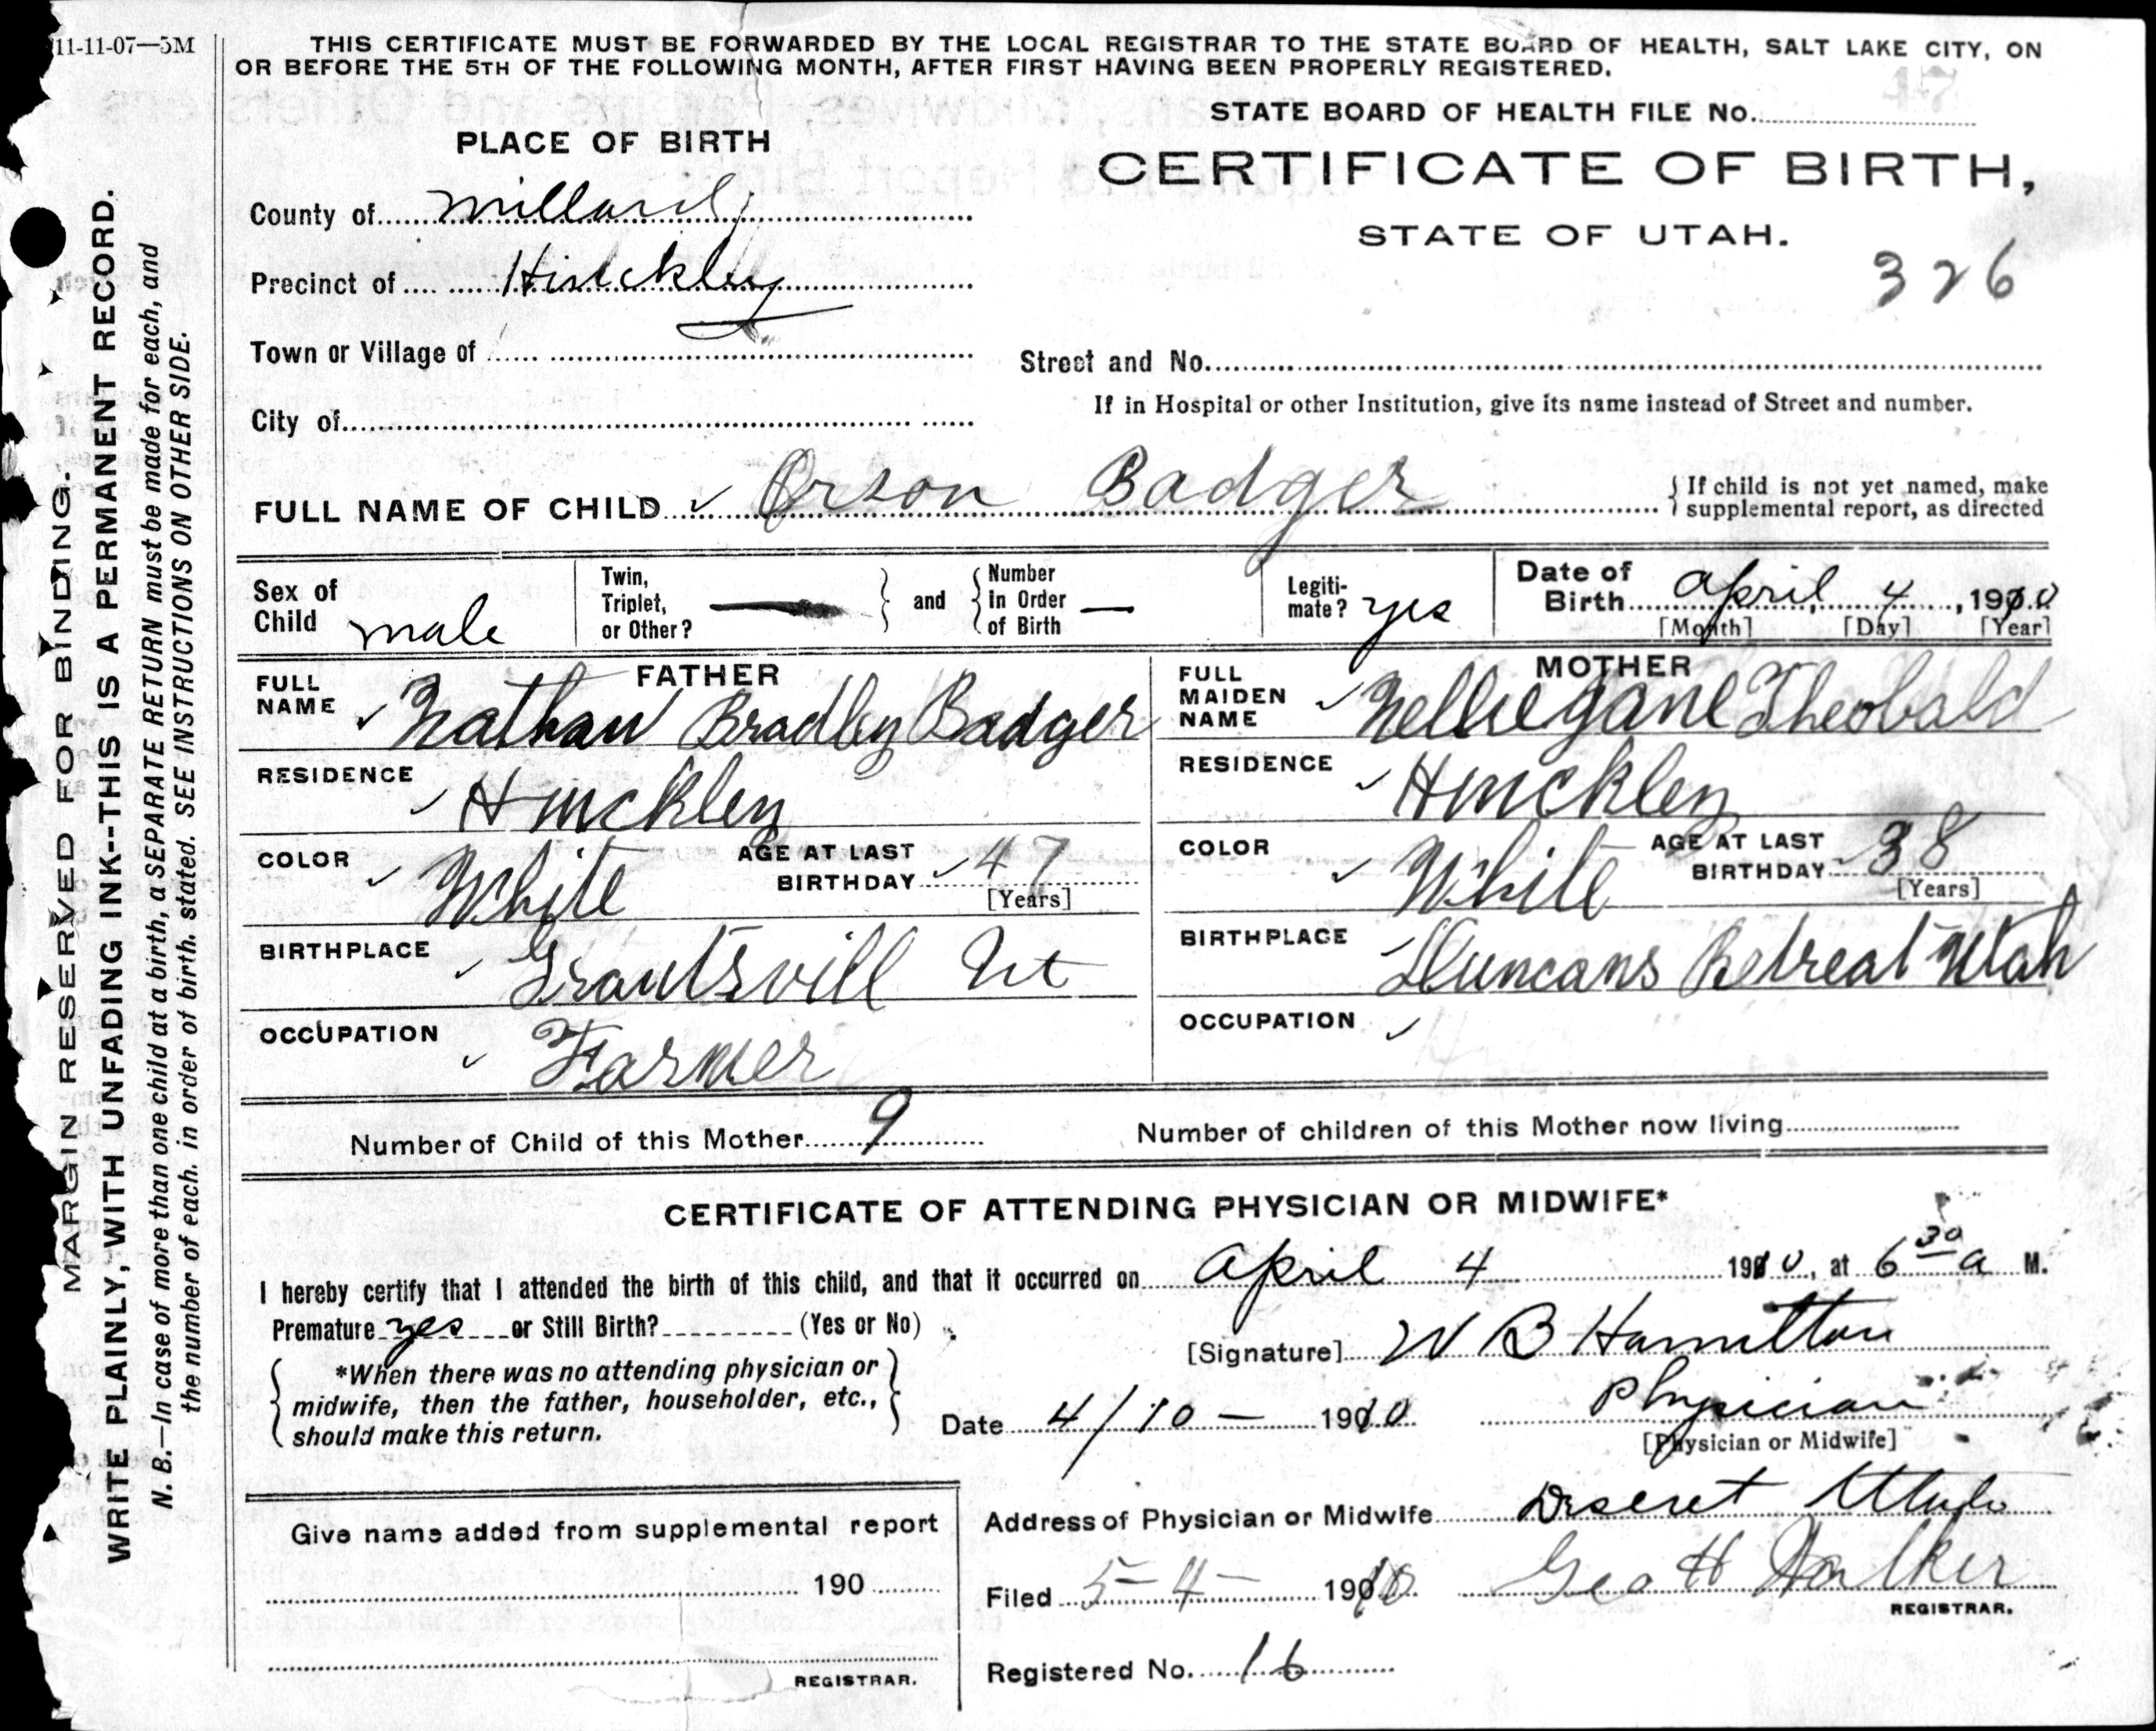 11-11-07—5M
THIS CERTIFICATE MUST BE FORWARDED BY THE LOCAL REGISTRAR TO THE STATE BOARD OF HEALTH, SALT LAKE CITY, ON
OR BEFORE THE 5TH OF THE FOLLOWING MONTH, AFTER FIRST HAVING BEEN PROPERLY REGISTERED.
STATE BOARD OF HEALTH FILE No.
PLACE OF BIRTH
CERTIFICATE OF BIRTH,
STATE OF UTAH.
326
County of Millard
Precinct of Hinckley
Town or Village of
Street and No.
If in Hospital or other Institution, give its name instead of Street and number.
City of
FULL NAME OF CHILD Orson Badger
If child is not yet named, make
supplemental report, as directed
Sex of Child male
Twin, Triplet, or Other? — and Number in Order of Birth —
Legiti-mate? yes
Date of Birth April 4, 1910
[Month] [Day] [Year]
FATHER
FULL NAME Nathan Bradley Badger
RESIDENCE Hinckley
COLOR White AGE AT LAST BIRTHDAY 47
[Years]
BIRTHPLACE Grantsvill Ut
OCCUPATION Farmer
MOTHER
FULL MAIDEN NAME Nellie Jane Theobald
RESIDENCE Hinckley
COLOR White AGE AT LAST BIRTHDAY 38
[Years]
BIRTHPLACE Duncans Retreat Utah
OCCUPATION
Number of Child of this Mother 9
Number of children of this Mother now living
CERTIFICATE OF ATTENDING PHYSICIAN OR MIDWIFE*
I hereby certify that I attended the birth of this child, and that it occurred on April 4 1910, at 6 30 a M.
Premature yes or Still Birth? (Yes or No)
[Signature] W B Hamilton
*When there was no attending physician or
midwife, then the father, householder, etc.,
should make this return.
Date 4/10 — 1910
Physician
[Physician or Midwife]
Give name added from supplemental report
190
REGISTRAR.
Address of Physician or Midwife Deseret Utah
Filed 5-4- 1910 Geo H Walker
REGISTRAR.
Registered No. 16
MARGIN RESERVED FOR BINDING.
WRITE PLAINLY, WITH UNFADING INK--THIS IS A PERMANENT RECORD.
N. B.—In case of more than one child at a birth, a SEPARATE RETURN must be made for each, and
the number of each. in order of birth. stated. SEE INSTRUCTIONS ON OTHER SIDE.